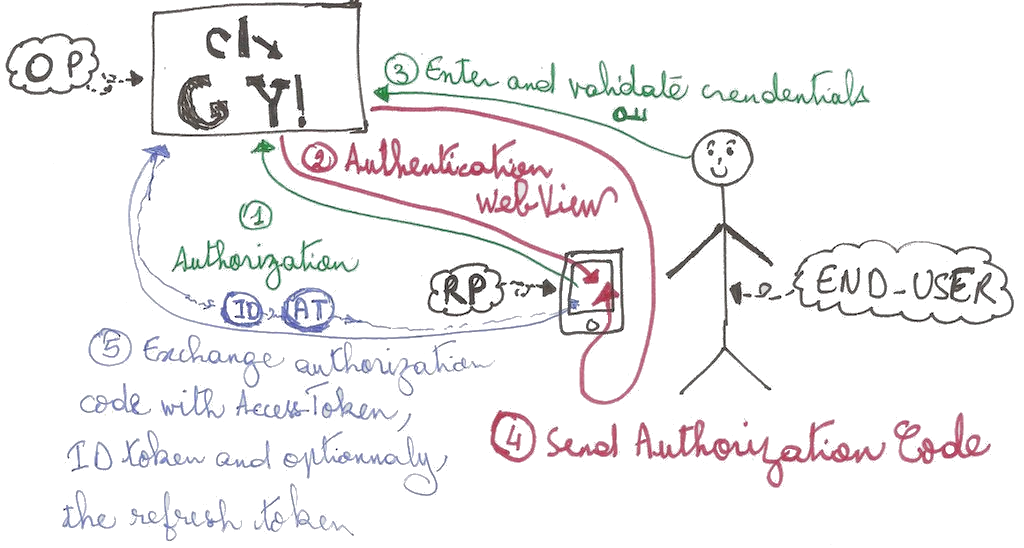 OP
G Y!
③ Enter and validate crendentials
② Authentication
WebView
①
Authorization
RP
END-USER
ID AT
⑤ Exchange authorization
code with Access-Token,
ID token and optionnaly,
the refresh token
④ Send Authorization Code